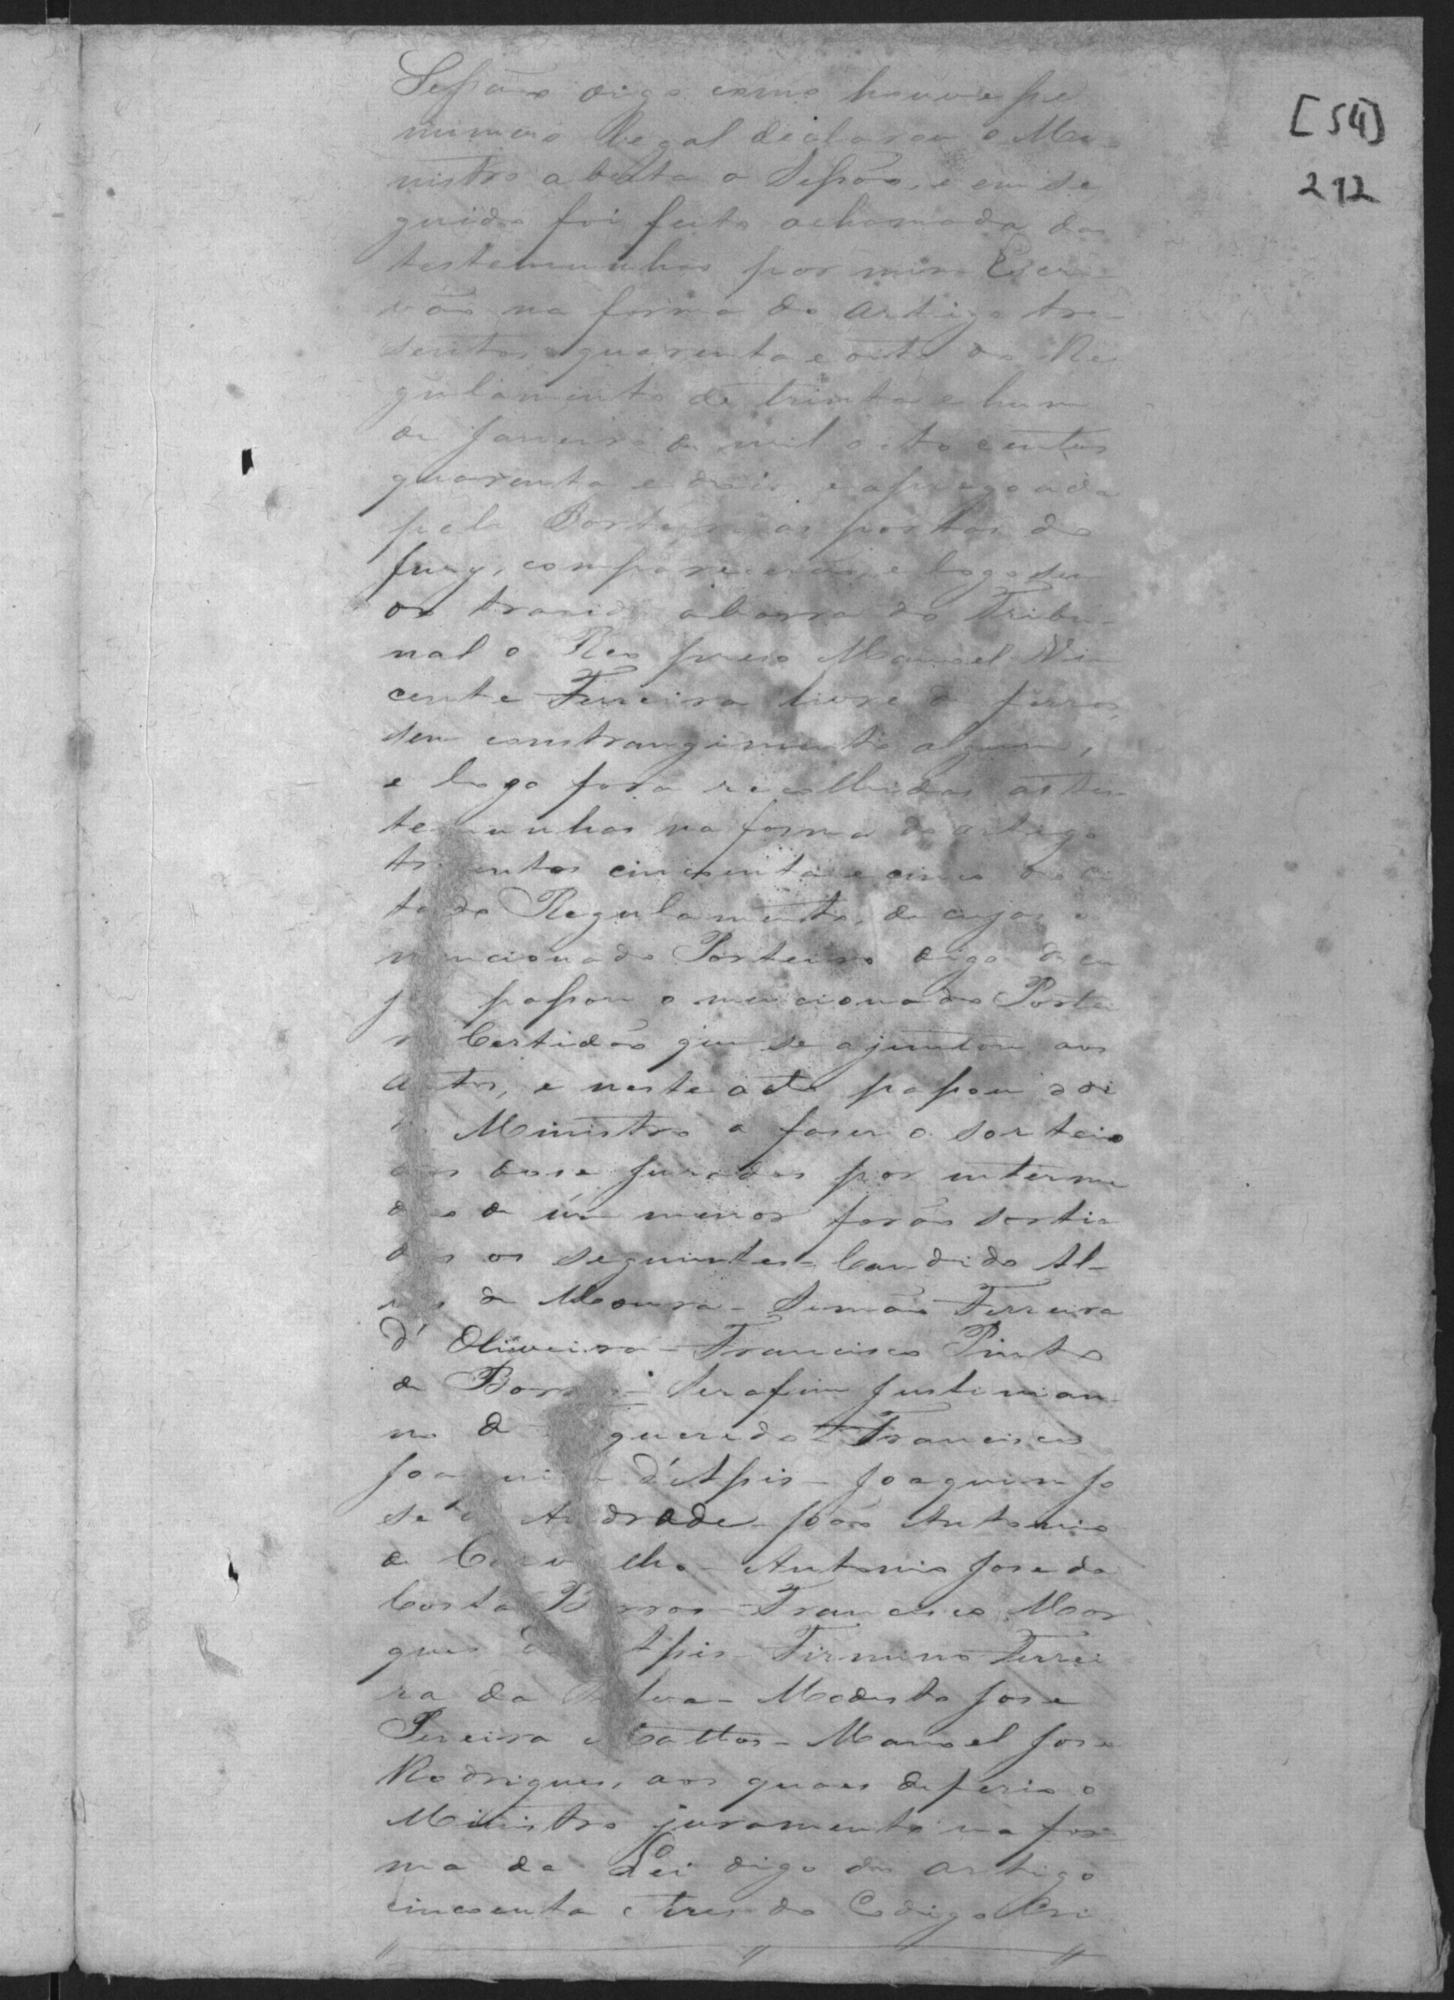 [54]
212
Sessão digo como houve se
numero legal declarou o Me
nistro aberta a Sessão, e em se
guida foi feita achamada das
testemunhas por mim Escri
vão na forma do artigo tre
sentos quarenta e oito do Re
gulamento de trinta e hum
de Janeiro de mil oito centos
quarenta e dois, e apregoada
pelo Porteiro as portas do
Jury, comparecerão, e logo sen
do á barra do Tribu
nal o Reo preso Manoel Vi
cente Ferreira livre de ferros,
sem constrangimento algum,
e logo fora recolhidas as tes
temunhas na forma do artigo
tresentos cincoenta e cinco do ci
tado Regulamento, de cujas o
mencionado Porteiro digo de cu
jo passou o mencionado Portei
ro Certidão que se ajuntou aos
autos, e neste acto passou o di
to Ministro a faser o sorteio
dos dose Jurados por interme
dio de um menor forão sortia
dos os seguintes - Candido Al-
ves de Moura - Simão Ferreira
d'Oliveira - Francisco Pinto
de Borges - Serafim Justinian
no de Figueredo - Francisco
Joaquim d'Assis - Joaquim Jo
se d'Andrade - João Antonio
de Carvalho - Antonio Jose da
Costa Barros - Francisco Mar
ques de Assis - Firmino Ferrei
ra da Silva - Modesto Jose
Pereira Mattos - Manoel Jose
Rodrigues, aos quaes deferio o
Ministro juramento na for
ma da Lei digo do artigo
cincoenta e tres do Codigo Cri